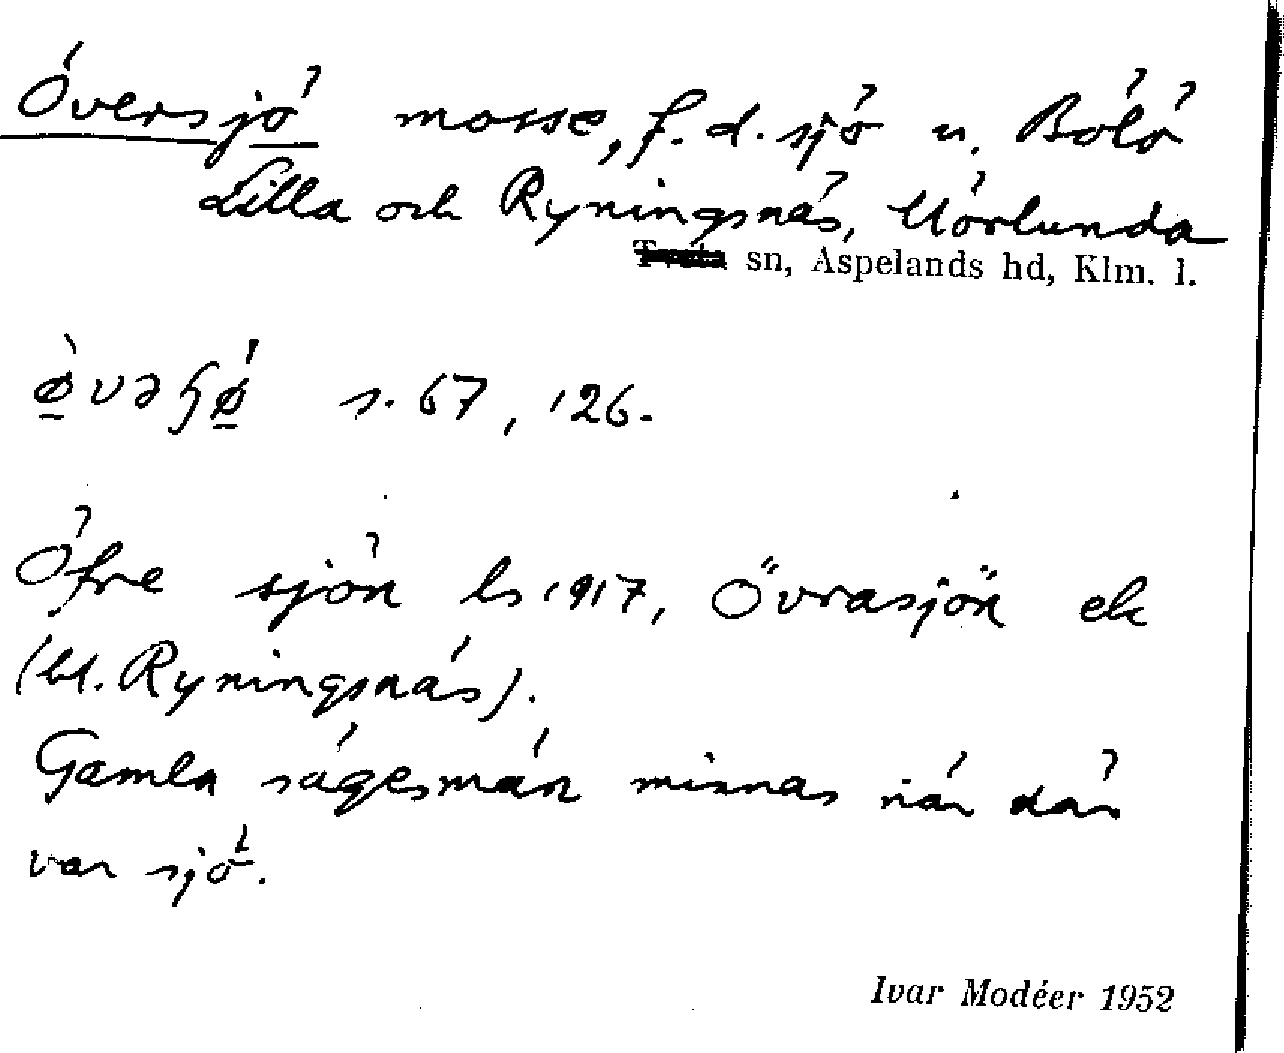 Översjö mosse, f. d. sjö u. Bölö
Lilla och Ryningsnäs, Mörlunda
sn, Aspelands hd, Klm. l.
s. 67, 126.
Öfre sjön ls 1917, Övrasjön ek
(bl. Ryningsnäs).
Gamla sägesmän minnas när där
var sjö.
Ivar Modéer 1952